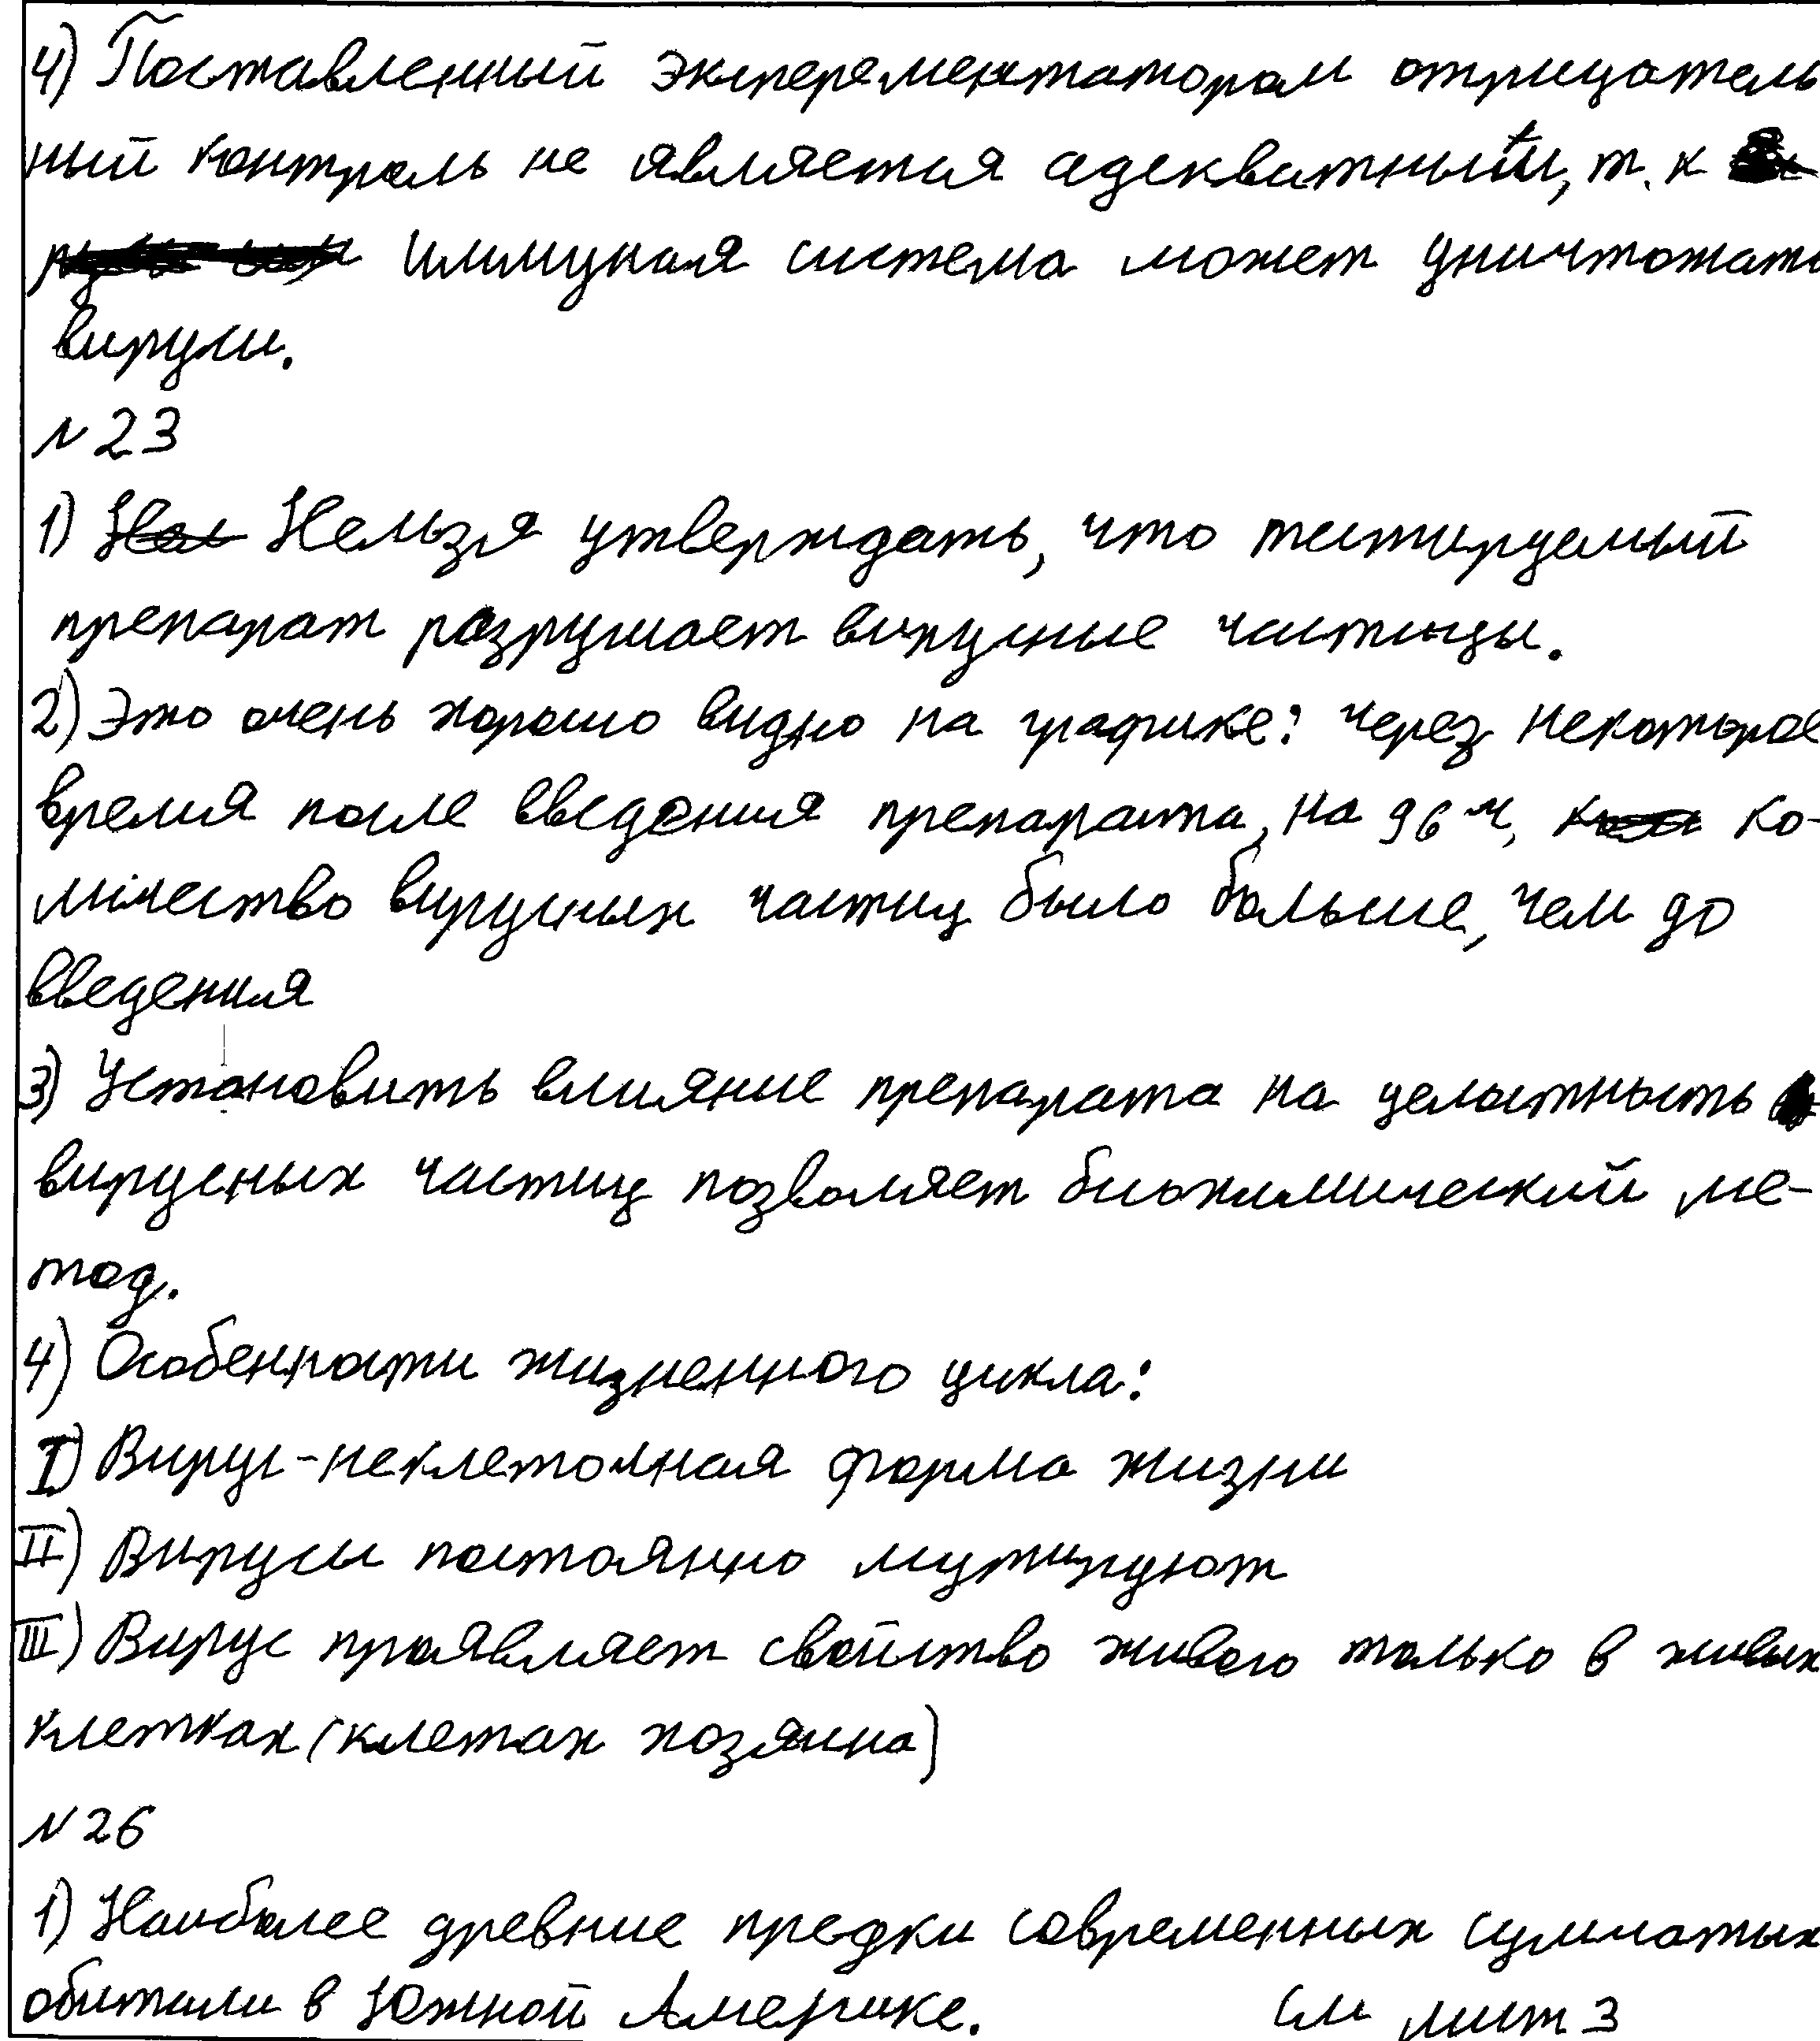 4) Поставленный эксперементатором отрицатель
ный контроль не является адекватным, т. к
иммунная система может уничтожать
вирусы.
N 23
1) Нельзя утверждать, что тестируемый
препарат разрушает вирусные частицы.
2) Это очень хорошо видно на графике: через некоторое
время после введения препарата, на 96 ч, ко-
личество вирусных частиц было больше, чем до
введения
3) Установить влияние препарата на целостность
вирусных частиц позволяет биохимический ме-
тод.
4) Особенности жизненного цикла:
I) Вирус - неклеточная форма жизни
II) Вирусы постоянно мутируют
III) Вирус проявляет свойство живого только в живых
клетках (клетах хозяина)
N 26
1) Наиболее древние предки современных сумчатых
обитали в Южной Америке. См лист 3